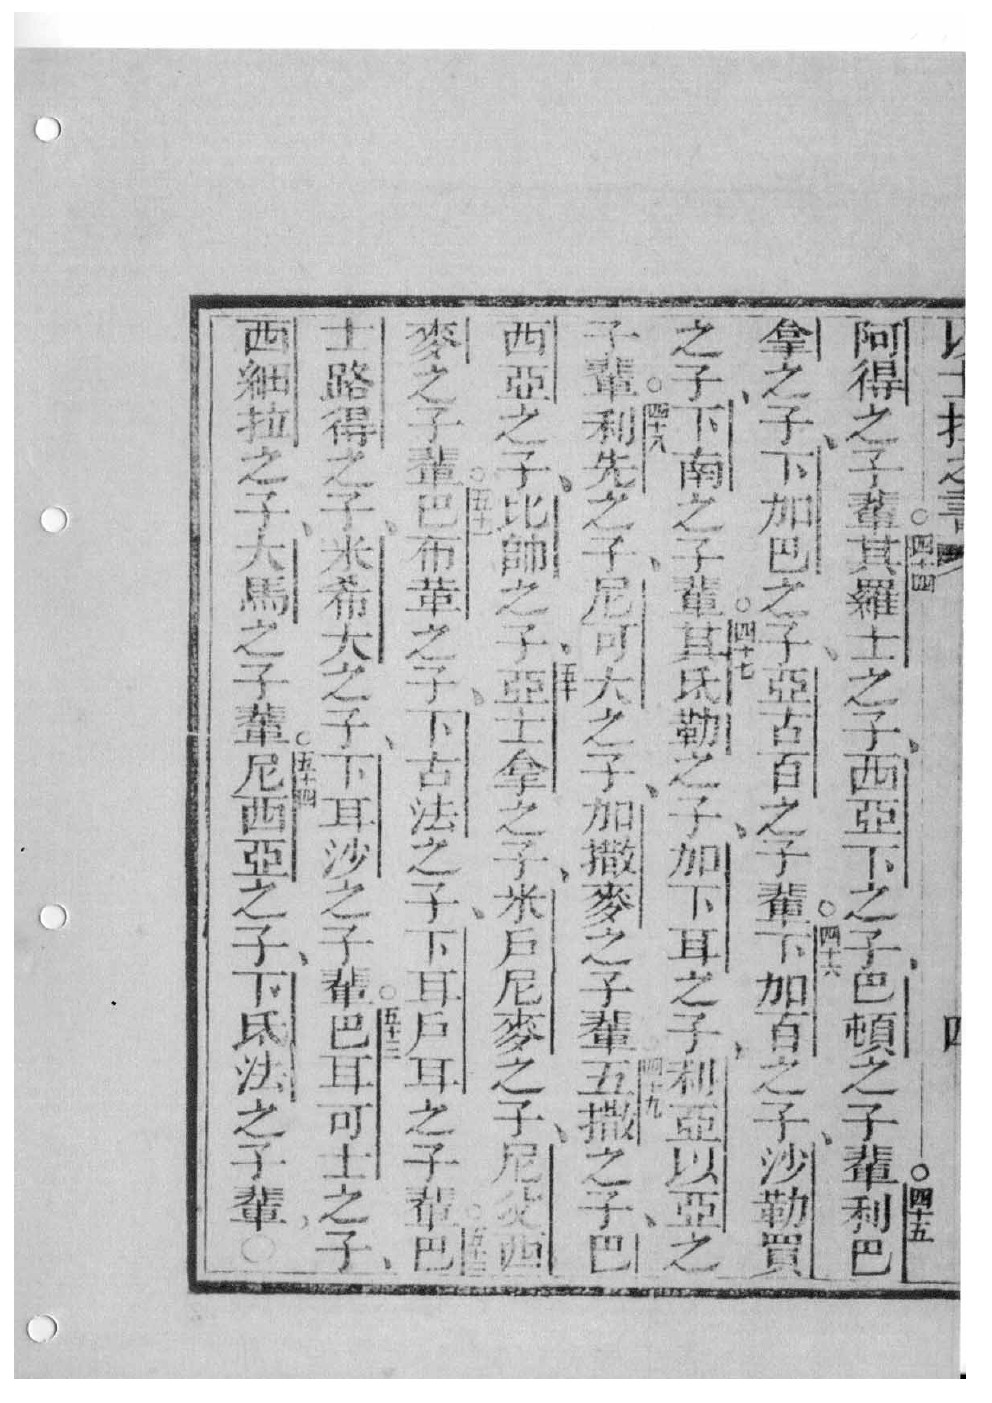 以士拉之書 四
阿得之子輩○四十四其羅士之子、西亞下之子、巴頓之子輩○四十五利巴
拿之子、下加巴之子、亞古百之子輩○四十六下加百之子、沙勒買
之子、下南之子輩○四十七其氐勒之子、加下耳之子、利亞以亞之
子輩○四十八利先之子、尼可大之子、加撒麥之子輩○四十九五撒之子、巴
西亞之子、比帥之子、○五十亞士拿之子、米戶尼麥之子、尼西
麥之子輩○五十一巴布革之子、下古法之子、下耳戶耳之子輩○五十二巴
士路得之子、米希大之子、下耳沙之子輩○五十三巴耳可士之子、
西細拉之子、大馬之子輩○五十四尼西亞之子、下氐法之子輩、○